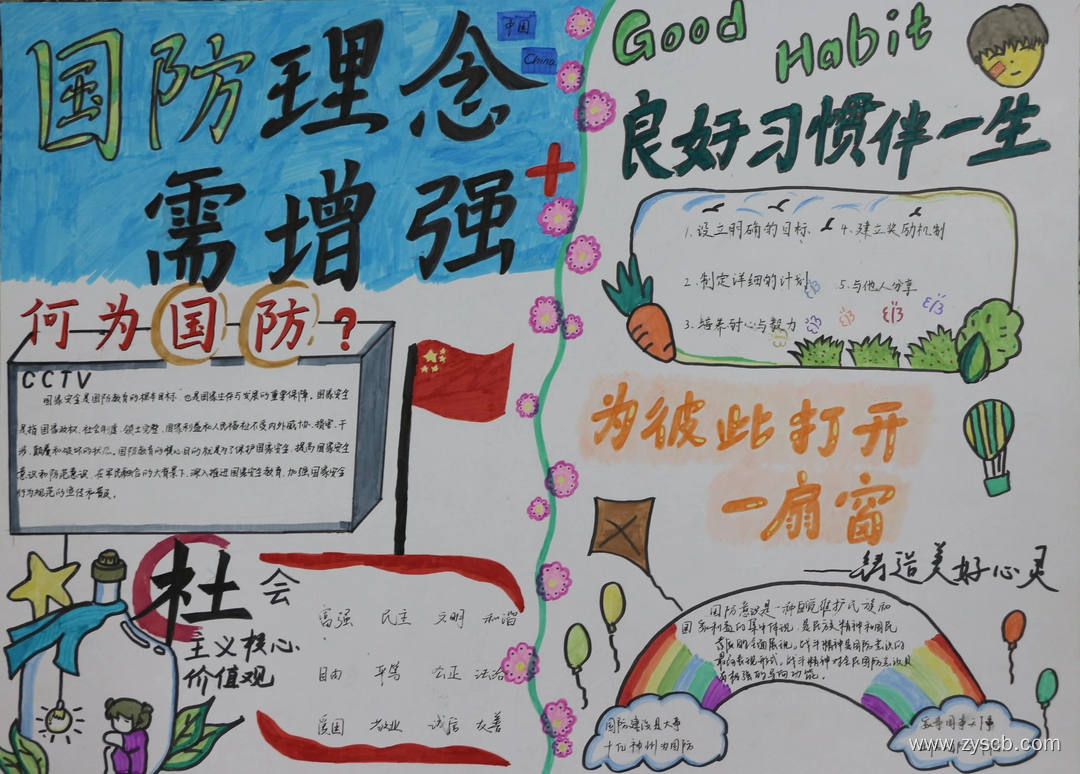 国防理念
需增强
中国
China
何为国防？
CCTV
国家安全是国防教育的根本目标，也是国家生存与发展的重要保障。国家安全
是指国家政权、社会制度、领土完整、国家利益和人民福祉不受内外威胁、损害、干
涉、颠覆和破坏的状况。国防教育的核心目的就是为了保护国家安全，提高国家安全
意识和防范意识。在军民融合的大背景下，深入推进国家安全教育，加强国家安全
社会
主义核心
价值观
富强 民主 文明 和谐
自由 平等 公正 法治
爱国 敬业 诚信 友善
Good Habit
良好习惯伴一生
1.设立明确的目标
2.制定详细的计划
3.培养耐心与毅力
4.建立奖励机制
5.与他人分享
为彼此打开
一扇窗
——铸造美好心灵
国防意识是一种自觉维护民族和
国家利益的集中体现，是民族精神和国民
最高表现形式。战斗精神对全民国防意识具
有极强的导向功能。
国防建设是大事
www.zyscb.com